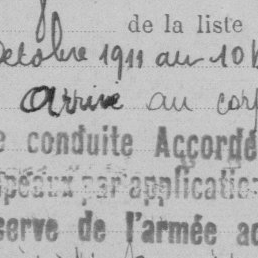 de la liste
octobre 1911 au 10
arrivé au corp
conduite Accordé
peaux par application
serve de l'armée ac